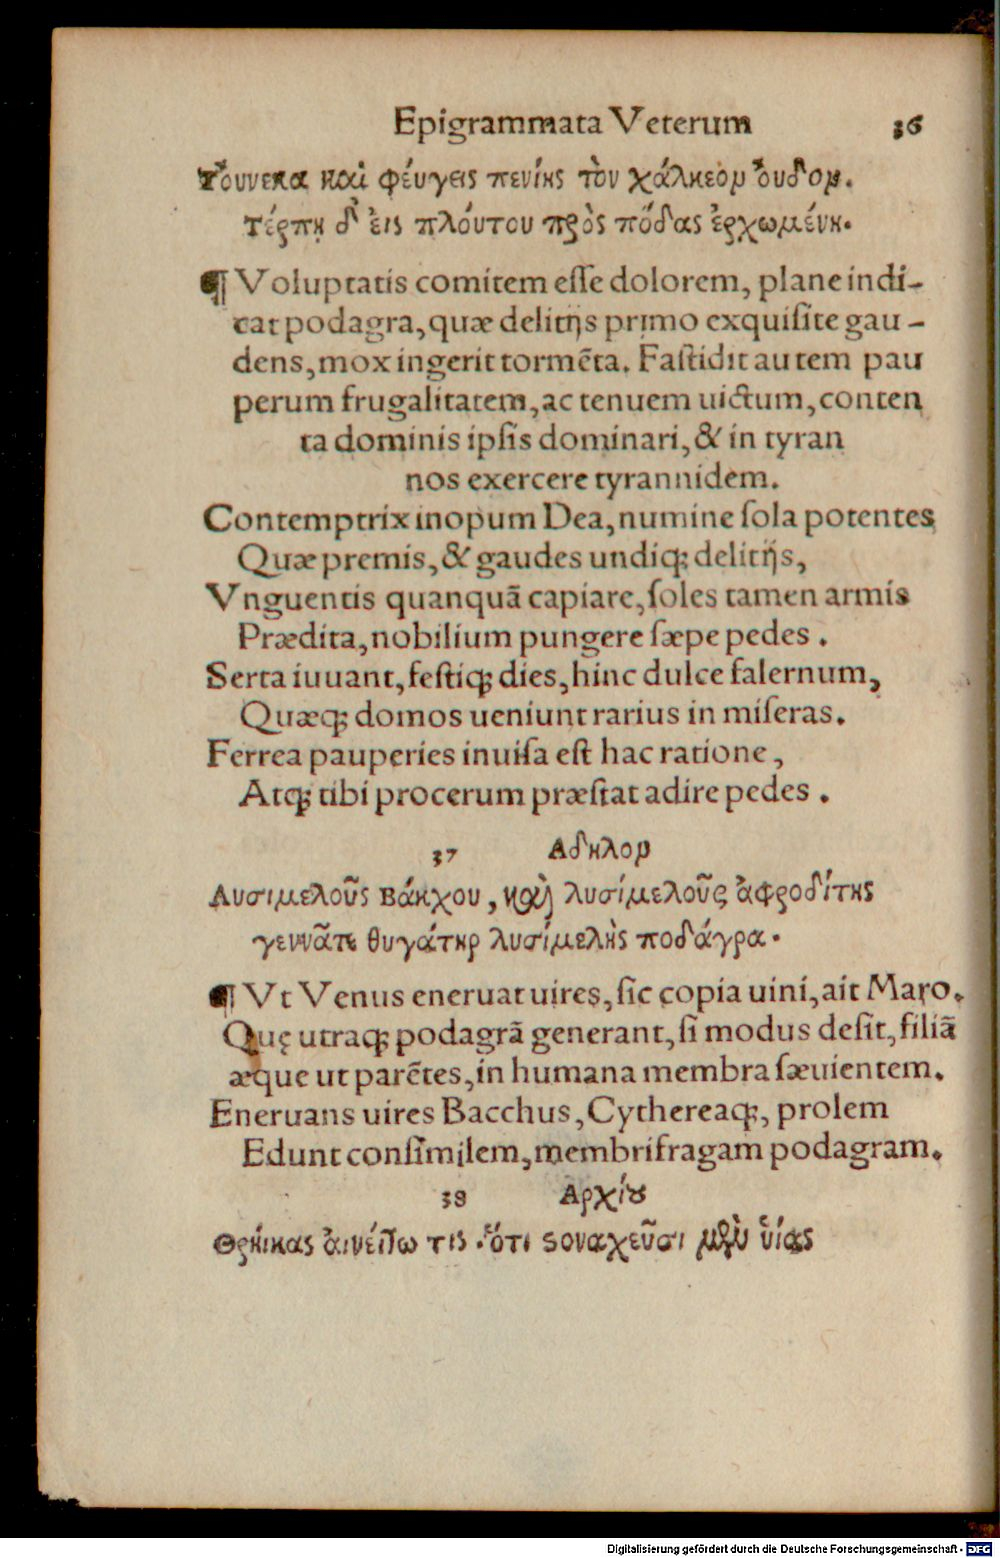 Epigrammata Veterum 36
Τὄυνεκα καὶ φέυγεις πενίης τὸν χάλκεον ὄυδον.
Τέρπῃ δ' ἐις πλόυτου πρὸς πόδας ἐρχωμένη.
¶ Voluptatis comitem eſſe dolorem, plane indi-
cat podagra, quæ delitijs primo exquiſite gau-
dens, mox ingerit tormēta. Faſtidit autem pau
perum frugalitatem, ac tenuem uictum, conten
ta dominis ipſis dominari, & in tyran
nos exercere tyrannidem.
Contemptrix inopum Dea, numine ſola potentes
Quæ premis, & gaudes undiq; delitijs,
Vnguentis quanquā capiare, ſoles tamen armis
Prædita, nobilium pungere ſæpe pedes.
Serta iuuant, feſtiq; dies, hinc dulce falernum,
Quæq; domos ueniunt rarius in miſeras.
Ferrea pauperies inuiſa eſt hac ratione,
Atq; tibi procerum præſtat adire pedes.
37 Αδηλον
Λυσιμελοῦς βάκχου, καὶ λυσίμελοῦς ἀφροδίτης
γεννᾶται θυγάτηρ λυσίμελὴς ποδάγρα.
¶ Vt Venus eneruat uires, ſic copia uini, ait Maro.
Quę utraq; podagrā generant, ſi modus deſit, filiā
æque ut parētes, in humana membra ſæuientem.
Eneruans uires Bacchus, Cythereaq;, prolem
Edunt conſimilem, membrifragam podagram.
38 Αρχίου
Θρήικας ἀινέιτω τις ὅτι στοναχεῦσι μὲν ὑίας
Digitalisierung gefördert durch die Deutsche Forschungsgemeinschaft - DFG